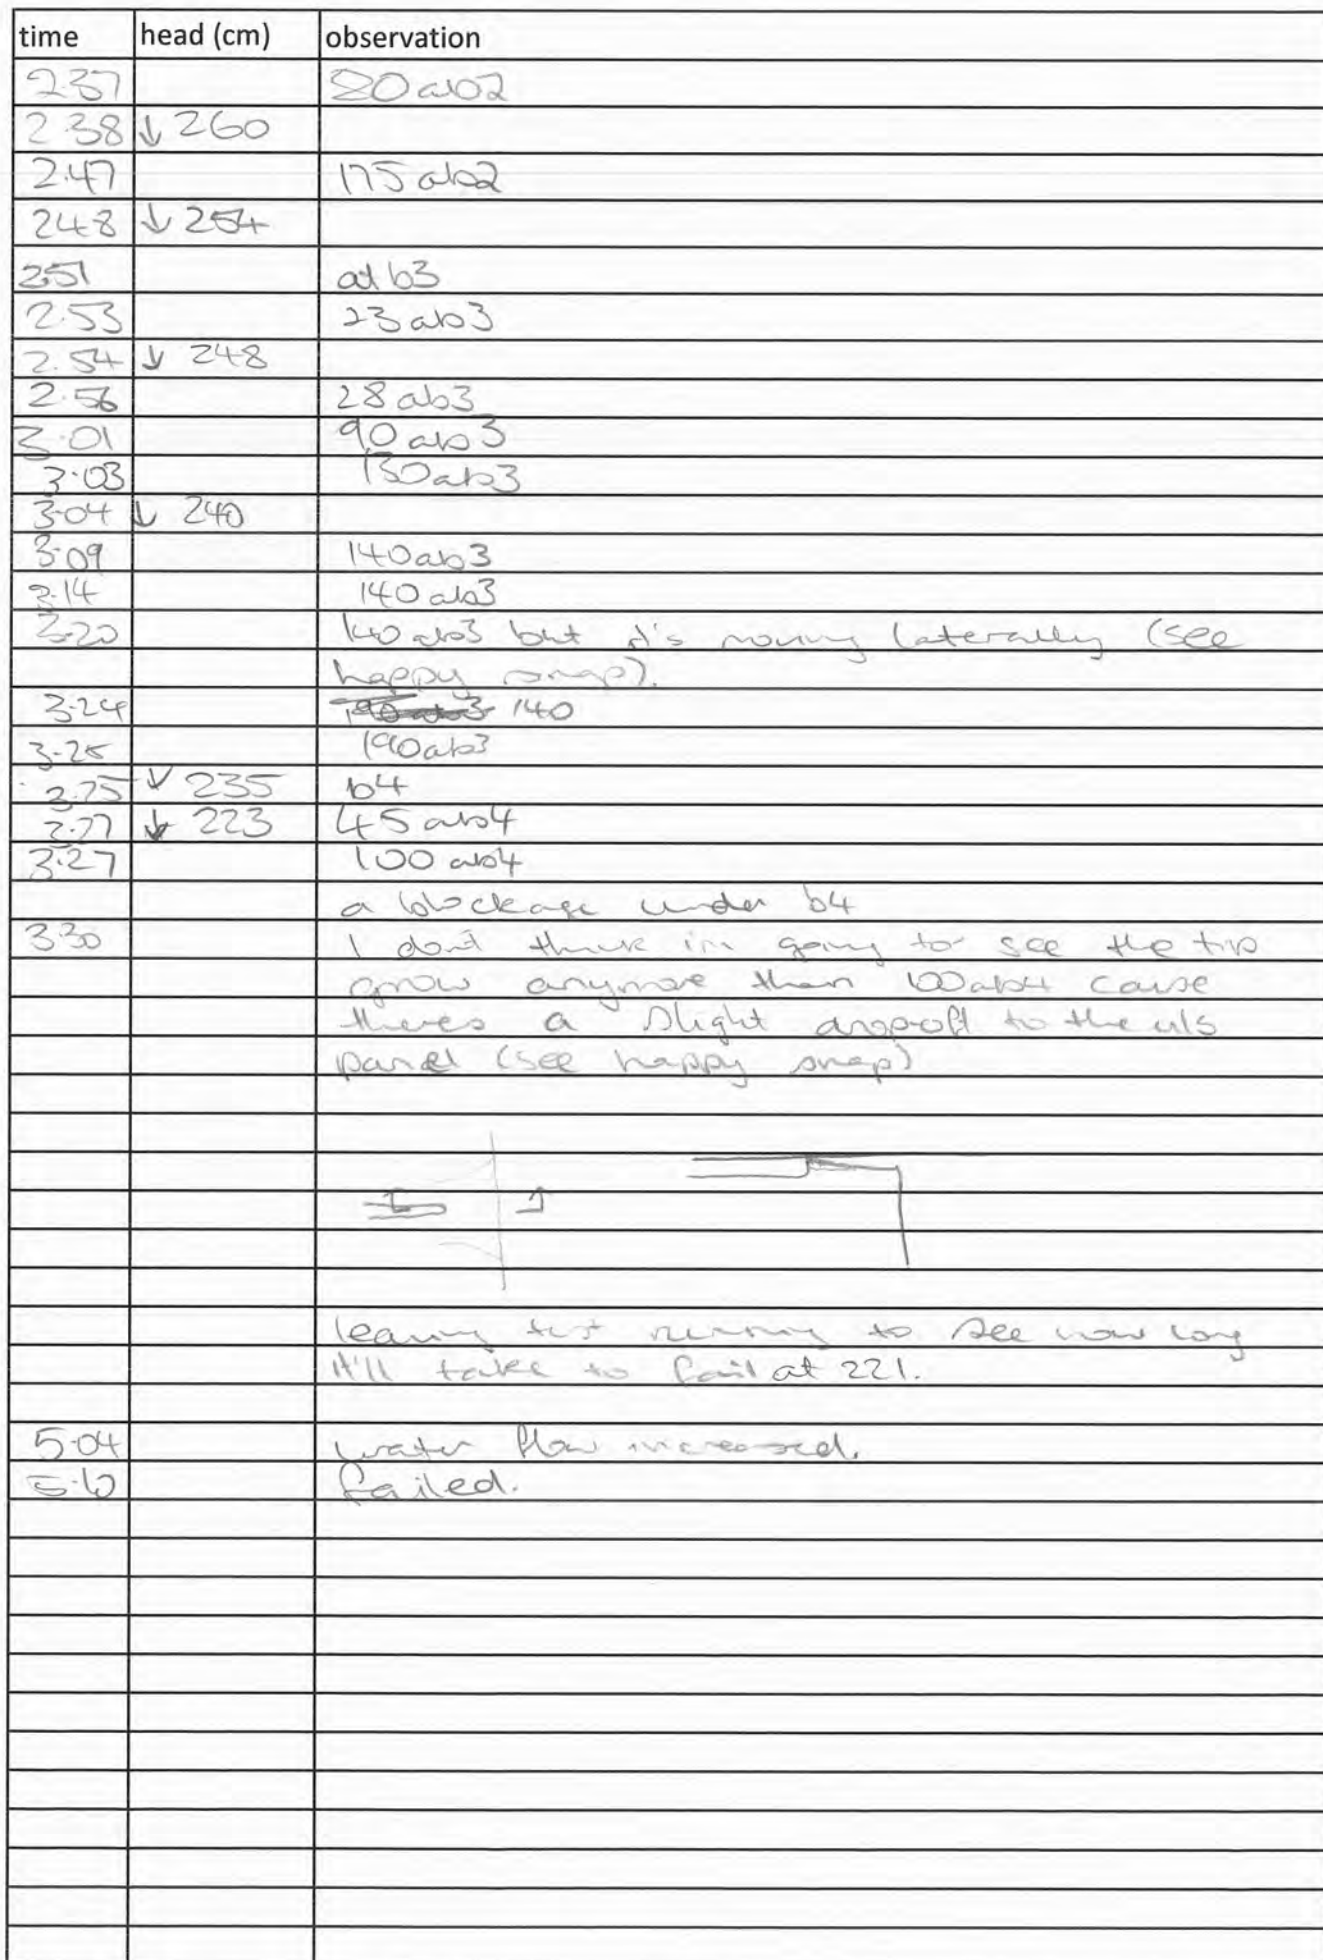 time head (cm) observation
2.37 80ab2
2.38 ↓ 260
2.47 175ab2
2.48 ↓ 254
2.51 at b3
2.53 23ab3
2.54 ↓ 248
2.56 28ab3
3.01 90ab3
3.03 130ab3
3.04 ↓ 240
3.09 140ab3
3.14 140ab3
3.20 140ab3 but it's moving laterally (see
happy snap).
3.24 190ab3 140
3.25 190ab3
3.25 ↓ 235 b4
↓ 223 45ab4
3.27 100ab4
a blockage under b4
3.30 I don't think im going to see the tip
grow anymore than 100ab4 cause
theres a slight dropoff to the u/s
panel (see happy snap)
leaving test running to see how long
it'll take to fail at 221.
5.04 water flow increased.
failed.